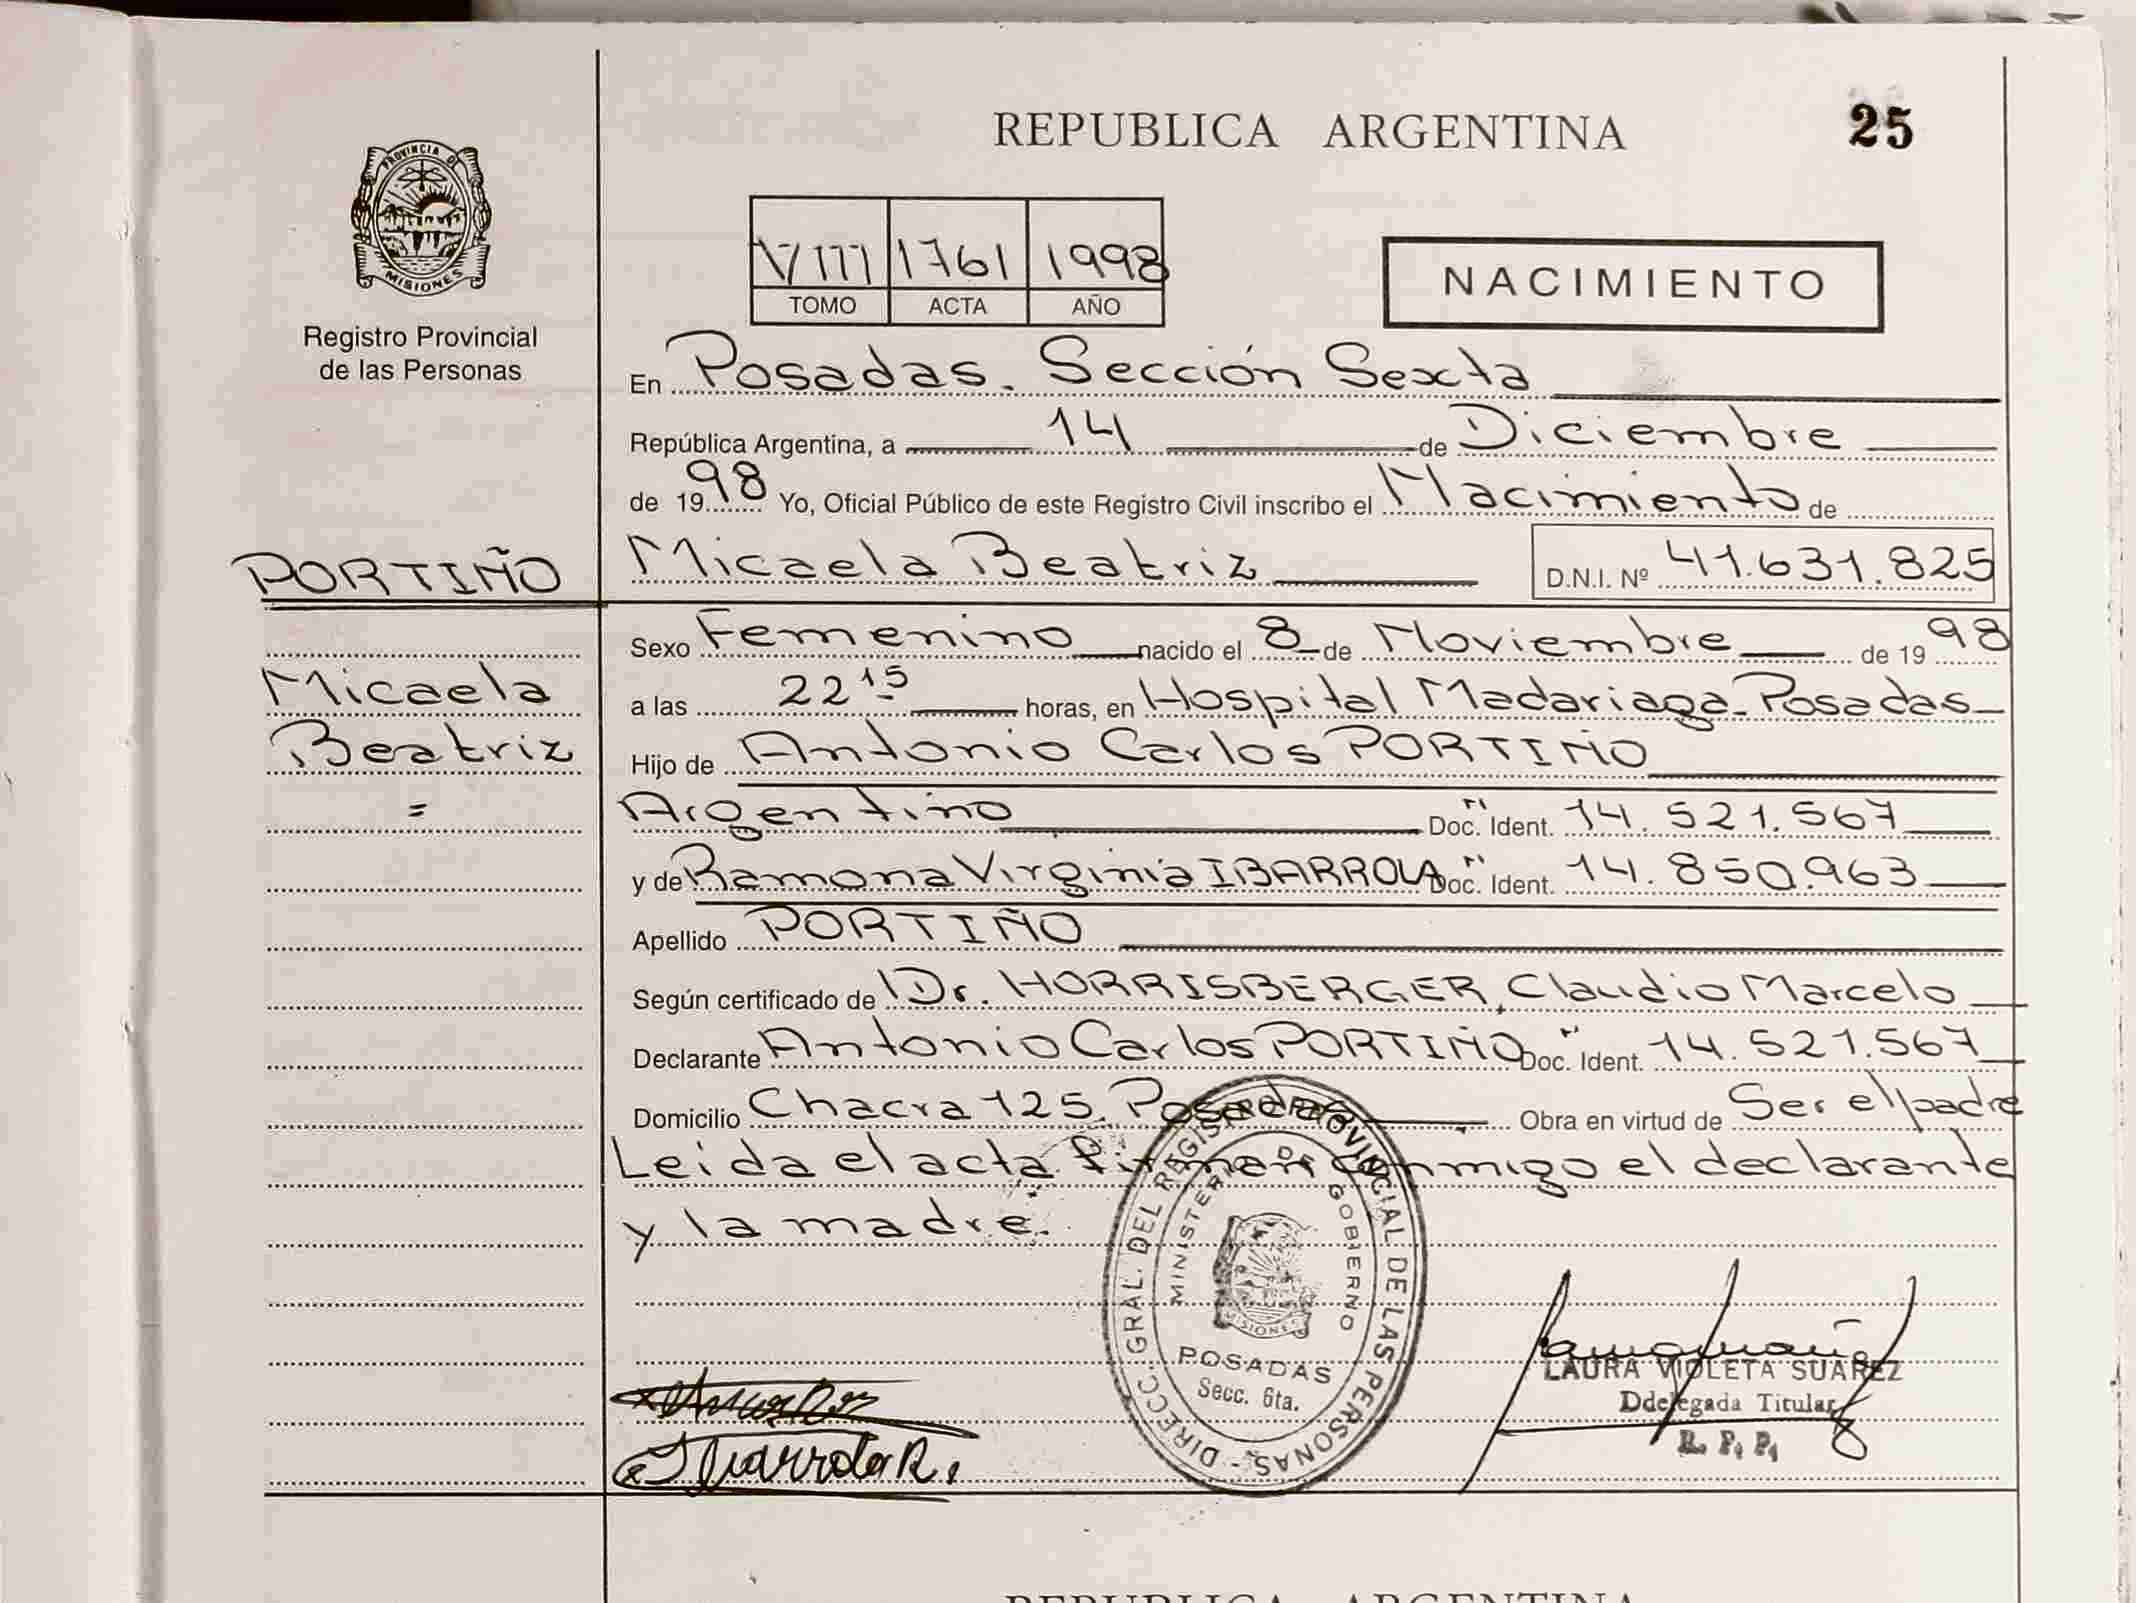 REPUBLICA ARGENTINA
25
PROVINCIA DE
MISIONES
Registro Provincial
de las Personas
VIII 1761 1998
TOMO ACTA AÑO
NACIMIENTO
En Posadas. Sección Sexta
República Argentina, a 14 de Diciembre
de 1998 Yo, Oficial Público de este Registro Civil inscribo el Nacimiento de
PORTIÑO
Micaela Beatriz D.N.I. Nº 41.631.825
Sexo Femenino nacido el 8 de Noviembre de 1998
Micaela
a las 22 15 horas, en Hospital Madariaga-Posadas-
Beatriz
Hijo de Antonio Carlos PORTIÑO
=
Argentino Doc. Ident. 14.521.567
y de Ramona Virginia IBARROLA Doc. Ident. 14.850.963
Apellido PORTIÑO
Según certificado de Dr. HORRISBERGER, Claudio Marcelo
Declarante Antonio Carlos PORTIÑO Doc. Ident. 14.521.567
Domicilio Chacra 125. Posadas Obra en virtud de Ser el padre
Leida el acta firman conmigo el declarante
y la madre.
DIRECC. GRAL. DEL REGISTRO PROVINCIAL DE LAS PERSONAS -
MINISTERIO DE GOBIERNO
MISIONES
POSADAS
Secc. 6ta.
LAURA VIOLETA SUAREZ
Ddelegada Titular
R. P. P.
Ibarrola R.
REPUBLICA ARGENTINA